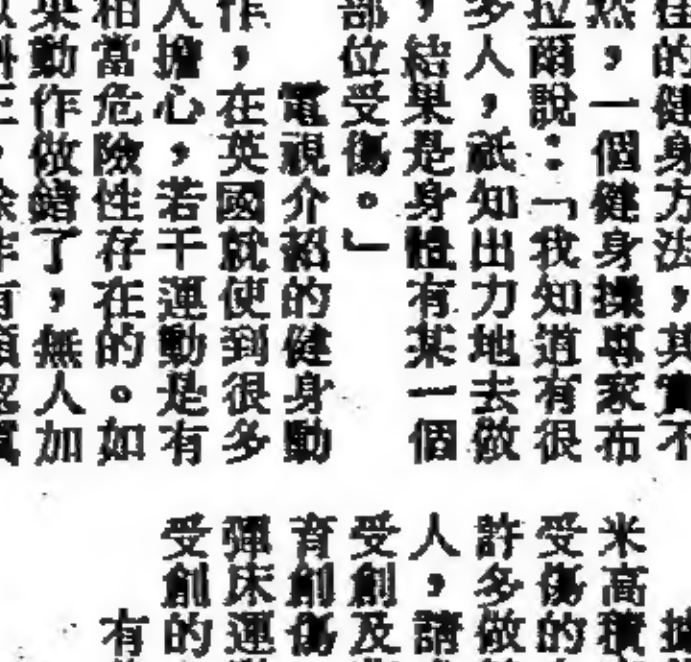 的健身方法，其實不
然，一個健身操專家布
拉爾說：「我知道有很
多人，祇知出力地去做
，結果是身體有某一個
部位受傷。」
電視介紹的健身動
作，在英國就使到很多
人擔心，若干運動是有
相當危險性存在的。如
果動作做錯了，無人加
米高積
受傷的
許多做
人，請
受創及
育創傷
彈床運
受創的
有